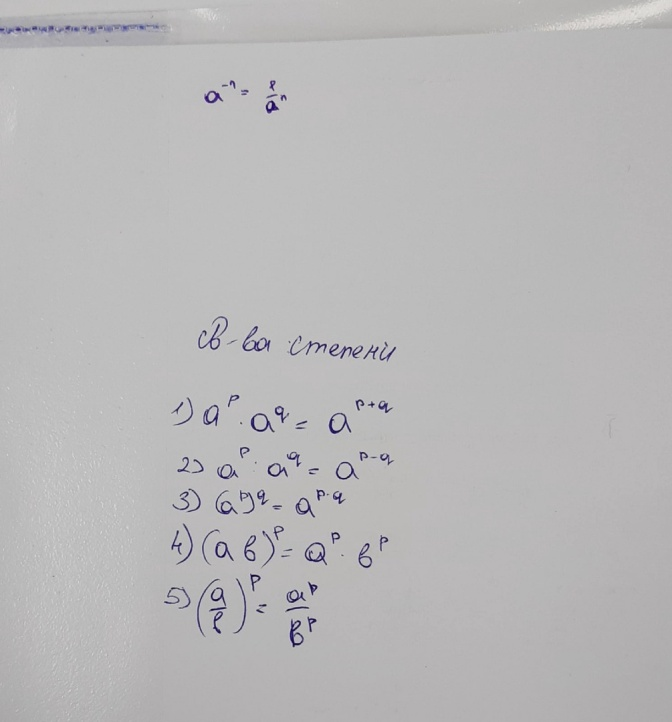 a⁻ⁿ = 1/aⁿ
Св-ва степени
1) a^p · a^q = a^(p+q)
2) a^p : a^q = a^(p-q)
3) (a^p)^q = a^(p·q)
4) (a b)^p = a^p · b^p
5) (a/b)^p = a^p/b^p